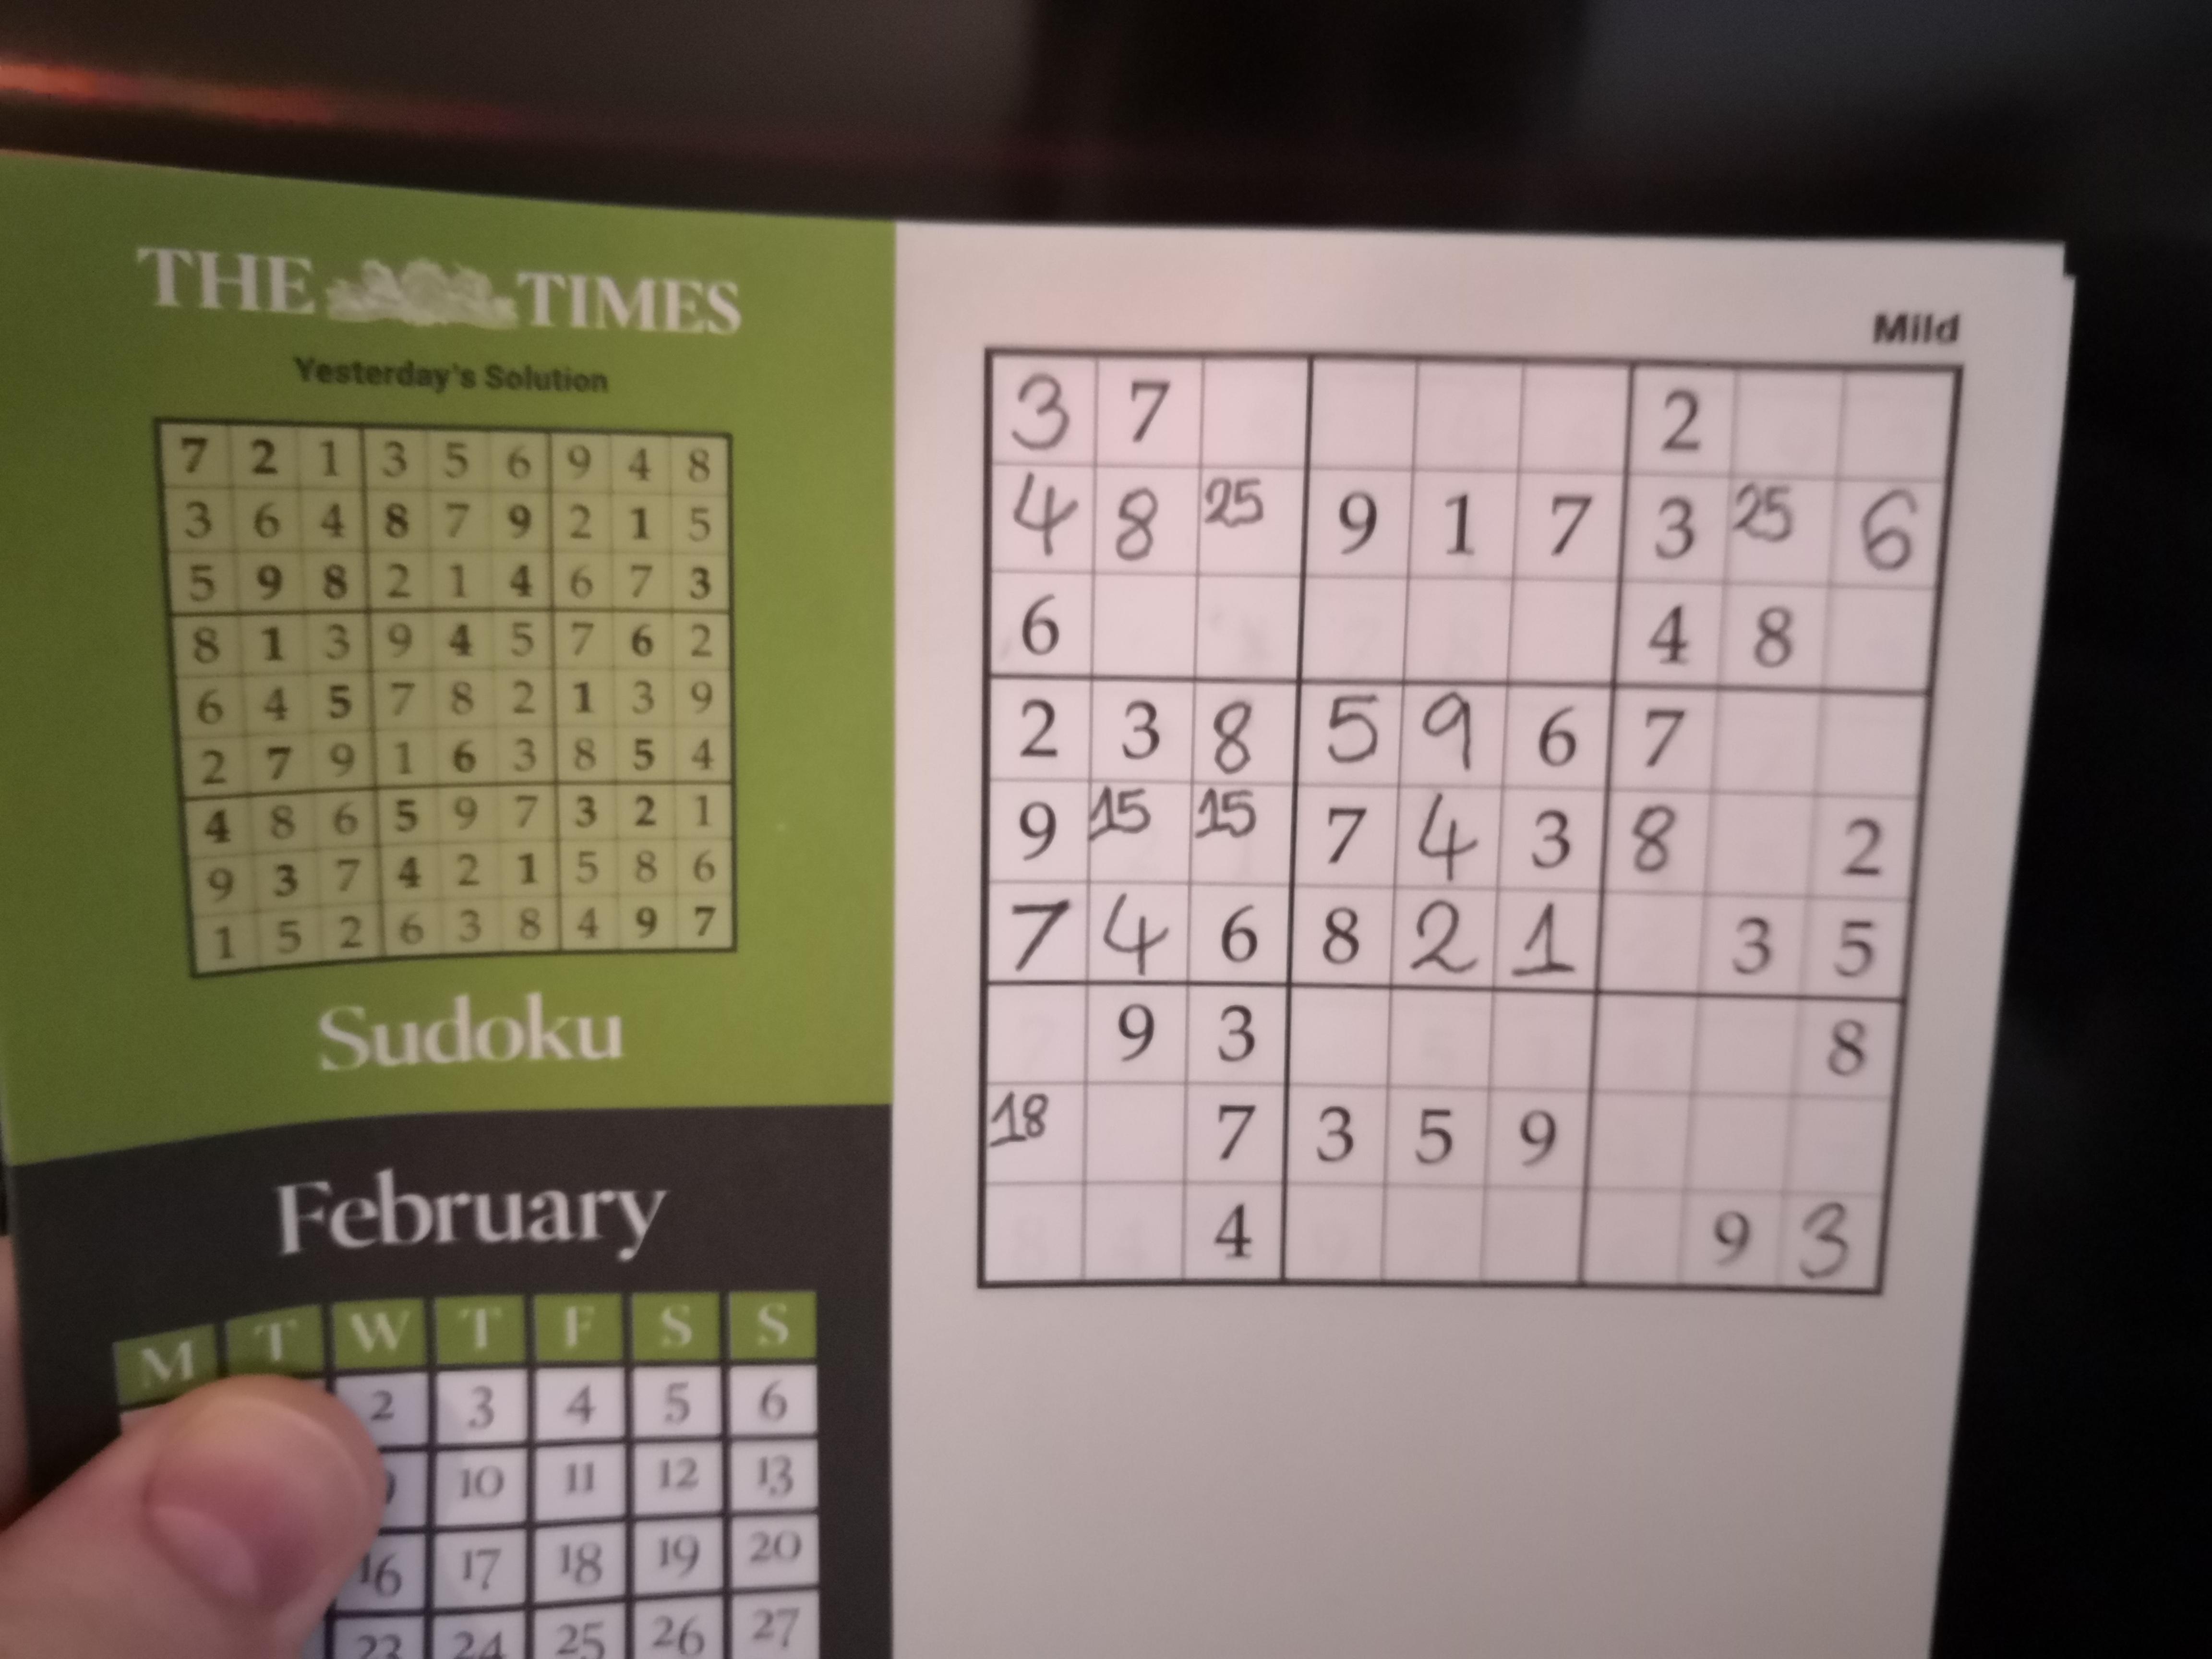 THE TIMES
Yesterday's Solution
7 2 1 3 5 6 9 4 8
3 6 4 8 7 9 2 1 5
5 9 8 2 1 4 6 7 3
8 1 3 9 4 5 7 6 2
6 4 5 7 8 2 1 3 9
2 7 9 1 6 3 8 5 4
4 8 6 5 9 7 3 2 1
9 3 7 4 2 1 5 8 6
1 5 2 6 3 8 4 9 7
Sudoku
February
M T W T F S S
2 3 4 5 6
10 11 12 13
16 17 18 19 20
23 24 25 26 27
Mild
3 7 2
4 8 25 9 1 7 3 25 6
6 4 8
2 3 8 5 9 6 7
9 15 15 7 4 3 8 2
7 4 6 8 2 1 3 5
9 3 8
18 7 3 5 9
4 9 3